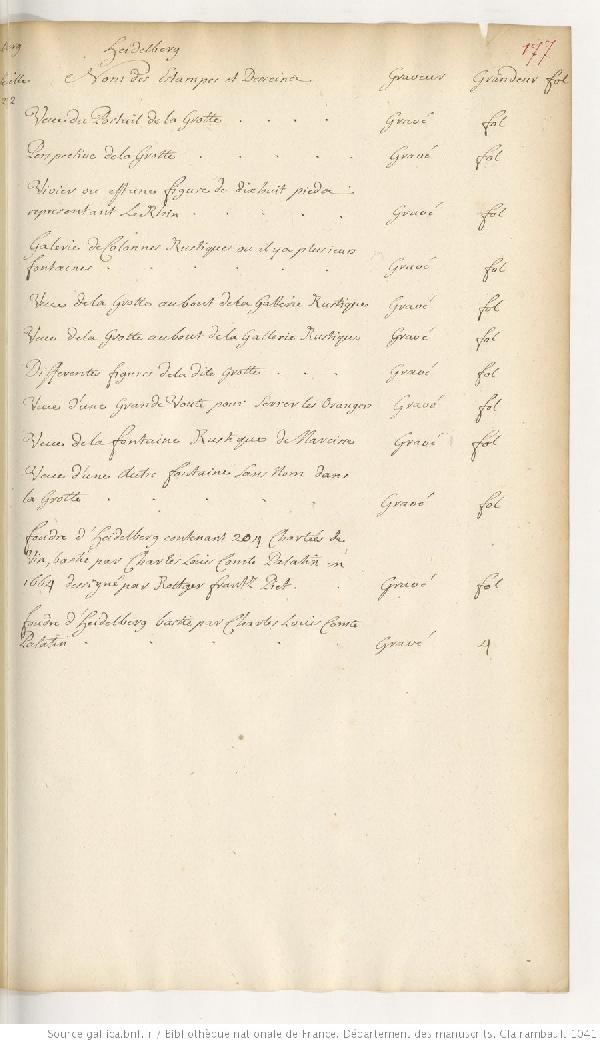 Heidelberg 177
Noms des Estampes et Desseins Graveur Grandeur fol
Veue du Portail de la Grotte . . . . Gravé fol
Perspective de la Grotte . . . . . Gravé fol
Vivier ou est une figure de dixhuit pieds
representant Le Rhin . . . . . Gravé fol
Galerie de Colonnes Rustiques ou il y a plusieurs
fontaines . . . . . . Gravé fol
Veue de la Grotte au bout de la Gallerie Rustique Gravé fol
Veue de la Grotte au bout de la Gallerie Rustique Gravé fol
Differentes figures de la dite Grotte . . . Gravé fol
Veue d'une Grande Voute pour Serrer les Oranges Gravé fol
Veue de la fontaine Rustique de Narcisse Gravé fol
Veue d'une Autre fontaine Sans Nom dans
la Grotte . . . . . Gravé fol
foudre d'Heidelberg contenant 204 Chartées de
Vin, bastie par Charles Louis Comte Palatin en
1664 dessigné par Rottger Pict. . Gravé fol
foudre d'Heidelberg bastie par Charles Louis Comte
Palatin . . . . . Gravé 4
Source gallica.bnf.fr / Bibliothèque nationale de France. Département des manuscrits. Clairambault 1041